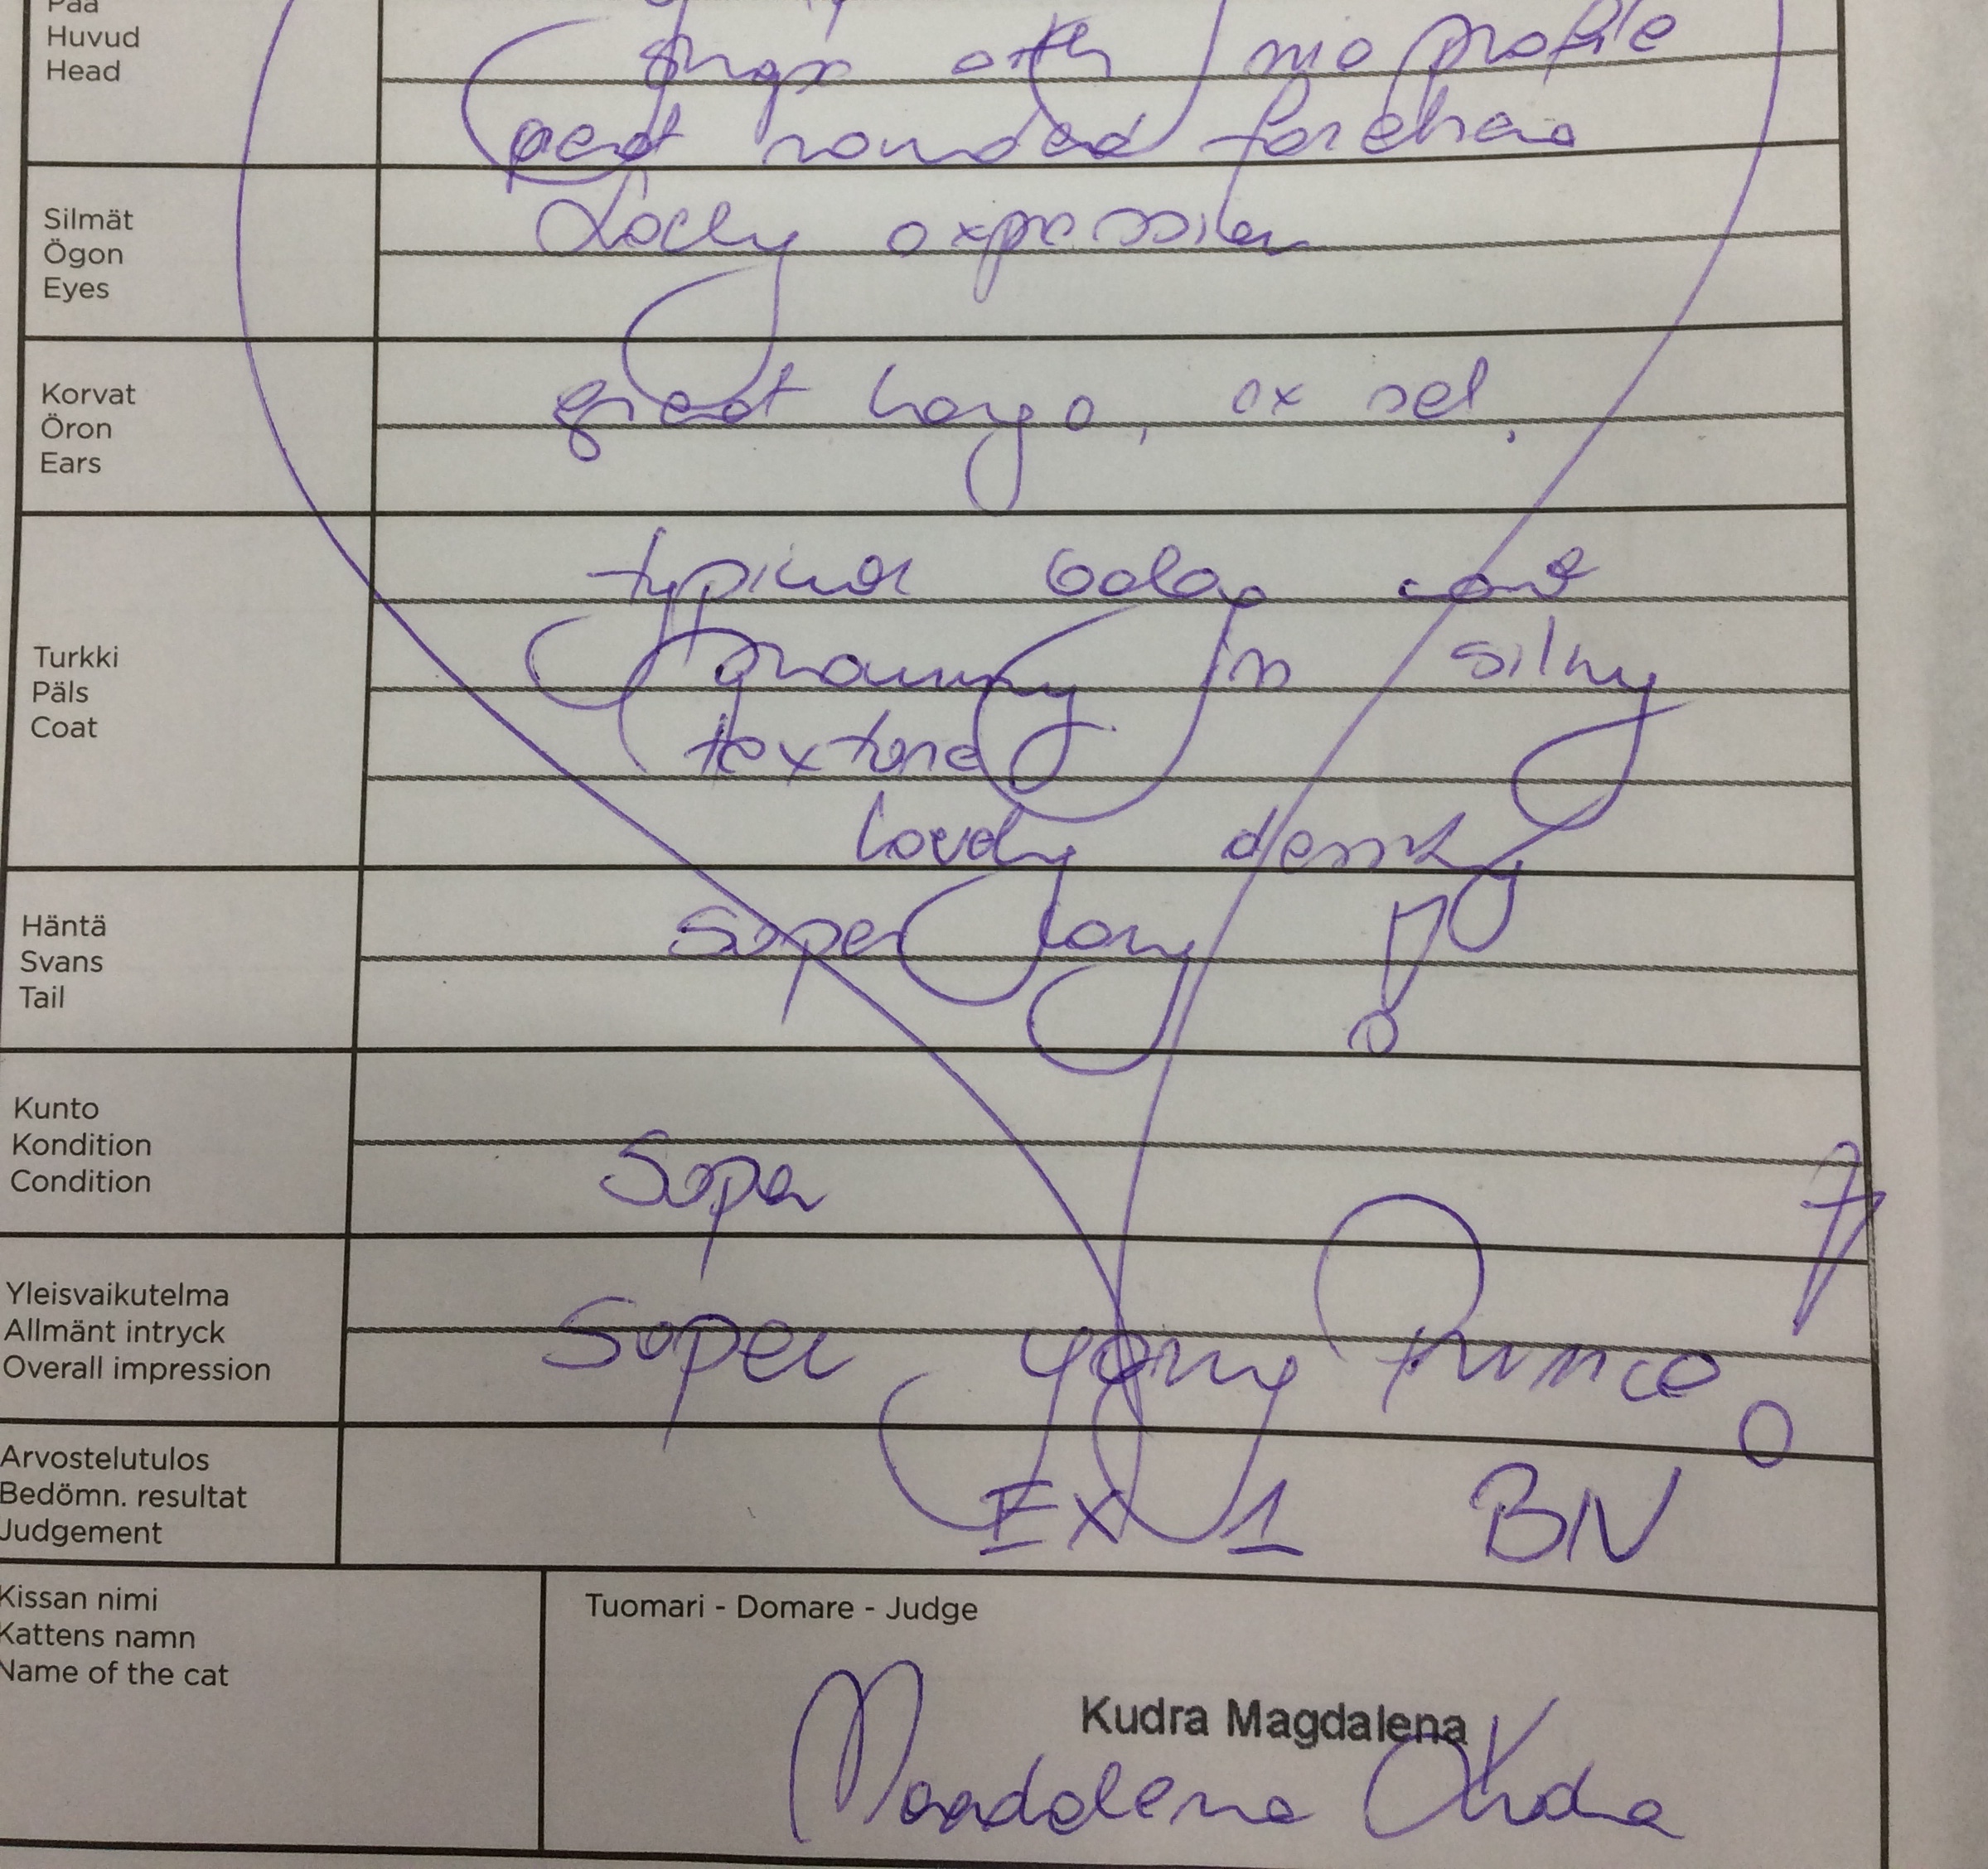 Pää
Huvud
Head
nio profile
rounded forehead
Silmät
Ögon
Eyes
expression
Korvat
Öron
Ears
great large, ex set,
Turkki
Päls
Coat
typical color and
in silky
texture
lovely
Häntä
Svans
Tail
Super long !
Kunto
Kondition
Condition
Super
Yleisvaikutelma
Allmänt intryck
Overall impression
Super young prince !
Arvostelutulos
Bedömn. resultat
Judgement
EX 1 BIV
Kissan nimi
Kattens namn
Name of the cat
Tuomari - Domare - Judge
Kudra Magdalena
Magdalena Kudra